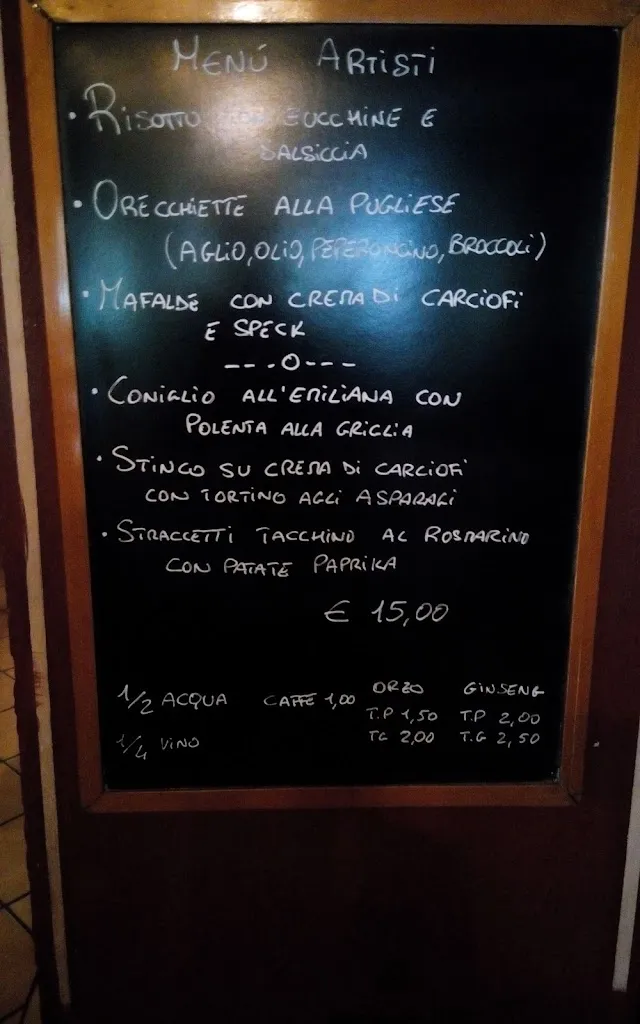 MENÚ ARTISTI
• RISOTTO CON ZUCCHINE E
SALSICCIA
• ORECCHIETTE ALLA PUGLIESE
(AGLIO, OLIO, PEPERONCINO, BROCCOLI)
• MAFALDE CON CREMA DI CARCIOFI
E SPECK
---O---
• CONIGLIO ALL'EMILIANA CON
POLENTA ALLA GRIGLIA
• STINCO SU CREMA DI CARCIOFI
CON TORTINO AGLI ASPARAGI
• STRACCETTI TACCHINO AL ROSMARINO
CON PATATE PAPRIKA
€ 15,00
1/2 ACQUA CAFFE 1,00
1/4 VINO
ORZO
T.P 1,50
TG 2,00
GINSENG
T.P 2,00
T.G 2,50